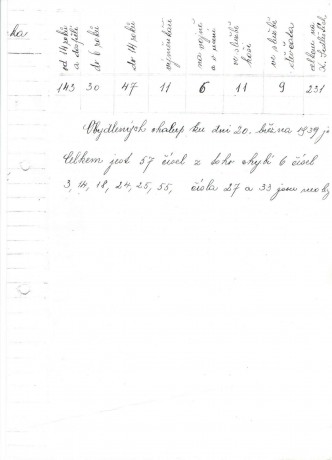 ka
od 14 roků a dospělí
do 6 roků
do 14 roků
výměnkáři
na vojně
ve službě
hoši
ve službě
děvčata
143 30 47 11 6 11 9 231
Obydlených chalup ku dni 20. března 1939 je
Celkem jest 57 čísel z toho chybí 6 čísel
3, 14, 18, 24, 25, 55, čísla 27 a 33 jsou neoby